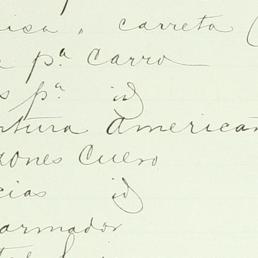 isa, carreta (
pª Carro
s pª id
tura American
dones Cuero
cias id
armador